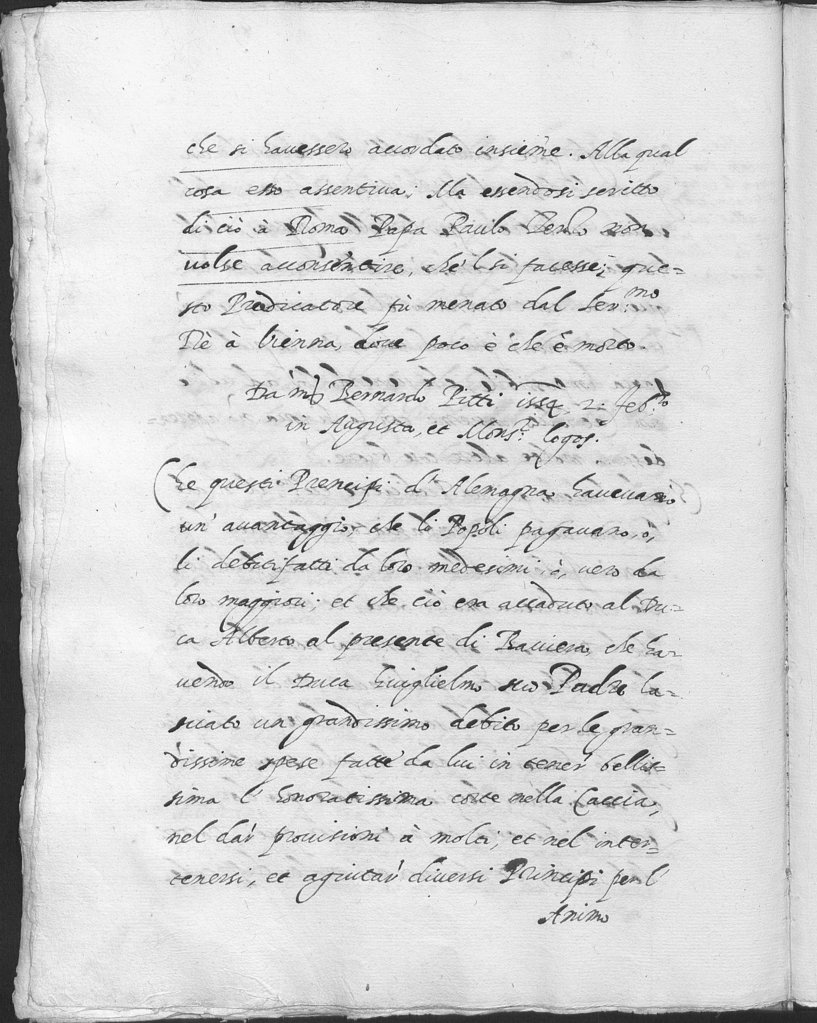 che si hauessero accordato insieme. Alla qual
cosa esso assentiua; Ma essendosi scritto
di ciò à Roma Papa Paulo Terzo non
uolse acconsentire, che 'l si facesse; que=
sto Predicatore fù menato dal Ser.mo
Rè à Vienna, doue poco è che è morto.
Da m Bernardo Pitti 1554. 2. feb.ro
in Augusta, et Mons.r
Che questi Prencipi d'Alemagna haueuano
un' auantaggio, che li Popoli pagauano, ò,
li debiti fatti da loro medesimi, ò, uero da
loro maggiori; et che ciò era accaduto al Du=
ca Alberto al presente di Bauiera che ha=
uendo il Duca Guiglielmo suo Padre la=
sciato un grandissimo debito per le gran=
dissime spese fatte da lui in tener bellis=
sima e honoratissima corte nella Caccia,
nel dar prouisioni à molti, et nel inter=
tenersi, et agiutar diuersi Principi per l'
Animo